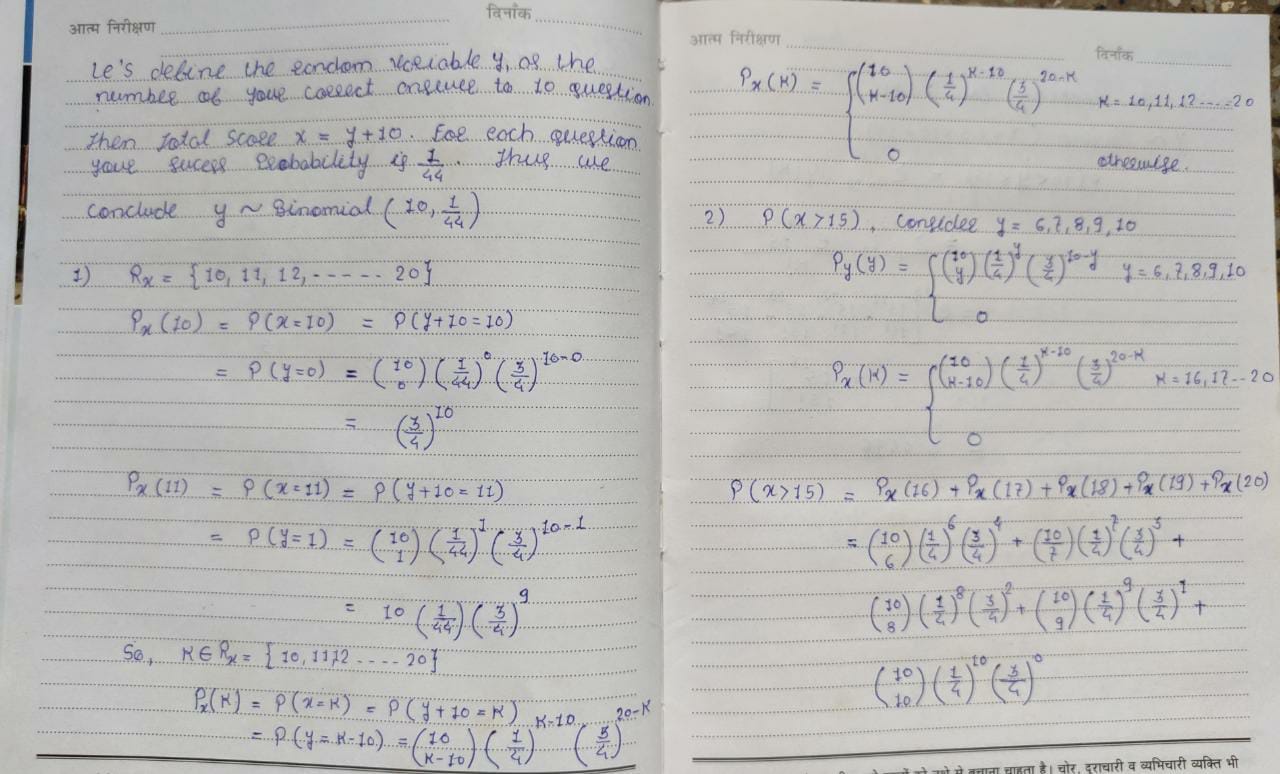 आत्म निरीक्षण
दिनाँक
Le's define the random variable y, as the
number of your correct answer to 10 question
then total score x = y+10. For each question
your sucess Probability is 1/44. Thus we
conclude y ~ Binomial (10, 1/44)
1) Rx = {10, 11, 12, ----- 20}
Px(10) = P(x=10) = P(y+10=10)
= P(y=0) = (10 0) (1/44)^0 (3/4)^10-0
= (3/4)^10
Px(11) = P(x=11) = P(y+10=11)
= P(y=1) = (10 1) (1/44)^1 (3/4)^10-1
= 10 (1/44) (3/4)^9
So, K ∈ Rx = {10, 11 12 .... 20}
Px(K) = P(x=K) = P(y+10=K)
= P(y=K-10) = (10 K-10) (1/4)^K-10 (3/4)^20-K
आत्म निरीक्षण
दिनाँक
Px(K) = { (10 K-10) (1/4)^K-10 (3/4)^20-K K=10,11,12....20
0 otherwise.
2) P(x>15), Consider y = 6,7,8,9,10
Py(y) = { (10 y) (1/4)^y (3/4)^10-y y=6,7,8,9,10
0
Px(K) = { (10 K-10) (1/4)^K-10 (3/4)^20-K K=16,17--20
0
P(x>15) = Px(16) + Px(17) + Px(18) + Px(19) + Px(20)
= (10 6) (1/4)^6 (3/4)^4 + (10/7) (1/4)^7 (3/4)^3 +
(10 8) (1/4)^8 (3/4)^2 + (10 9) (1/4)^9 (3/4)^1 +
(10 10) (1/4)^10 (3/4)^0
बचाना चाहता है। चोर, दुराचारी व व्यभिचारी व्यक्ति भी